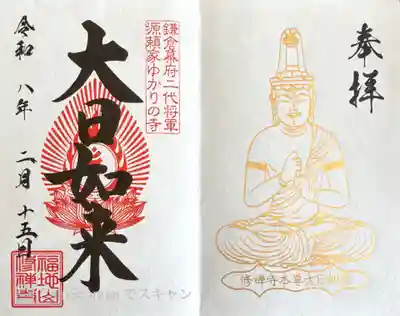 奉拝
修禅寺本尊大日如来
鎌倉幕府二代将軍
源頼家ゆかりの寺
大日如来
令和八年二月十五日
福地山
修禅寺
でスキャン